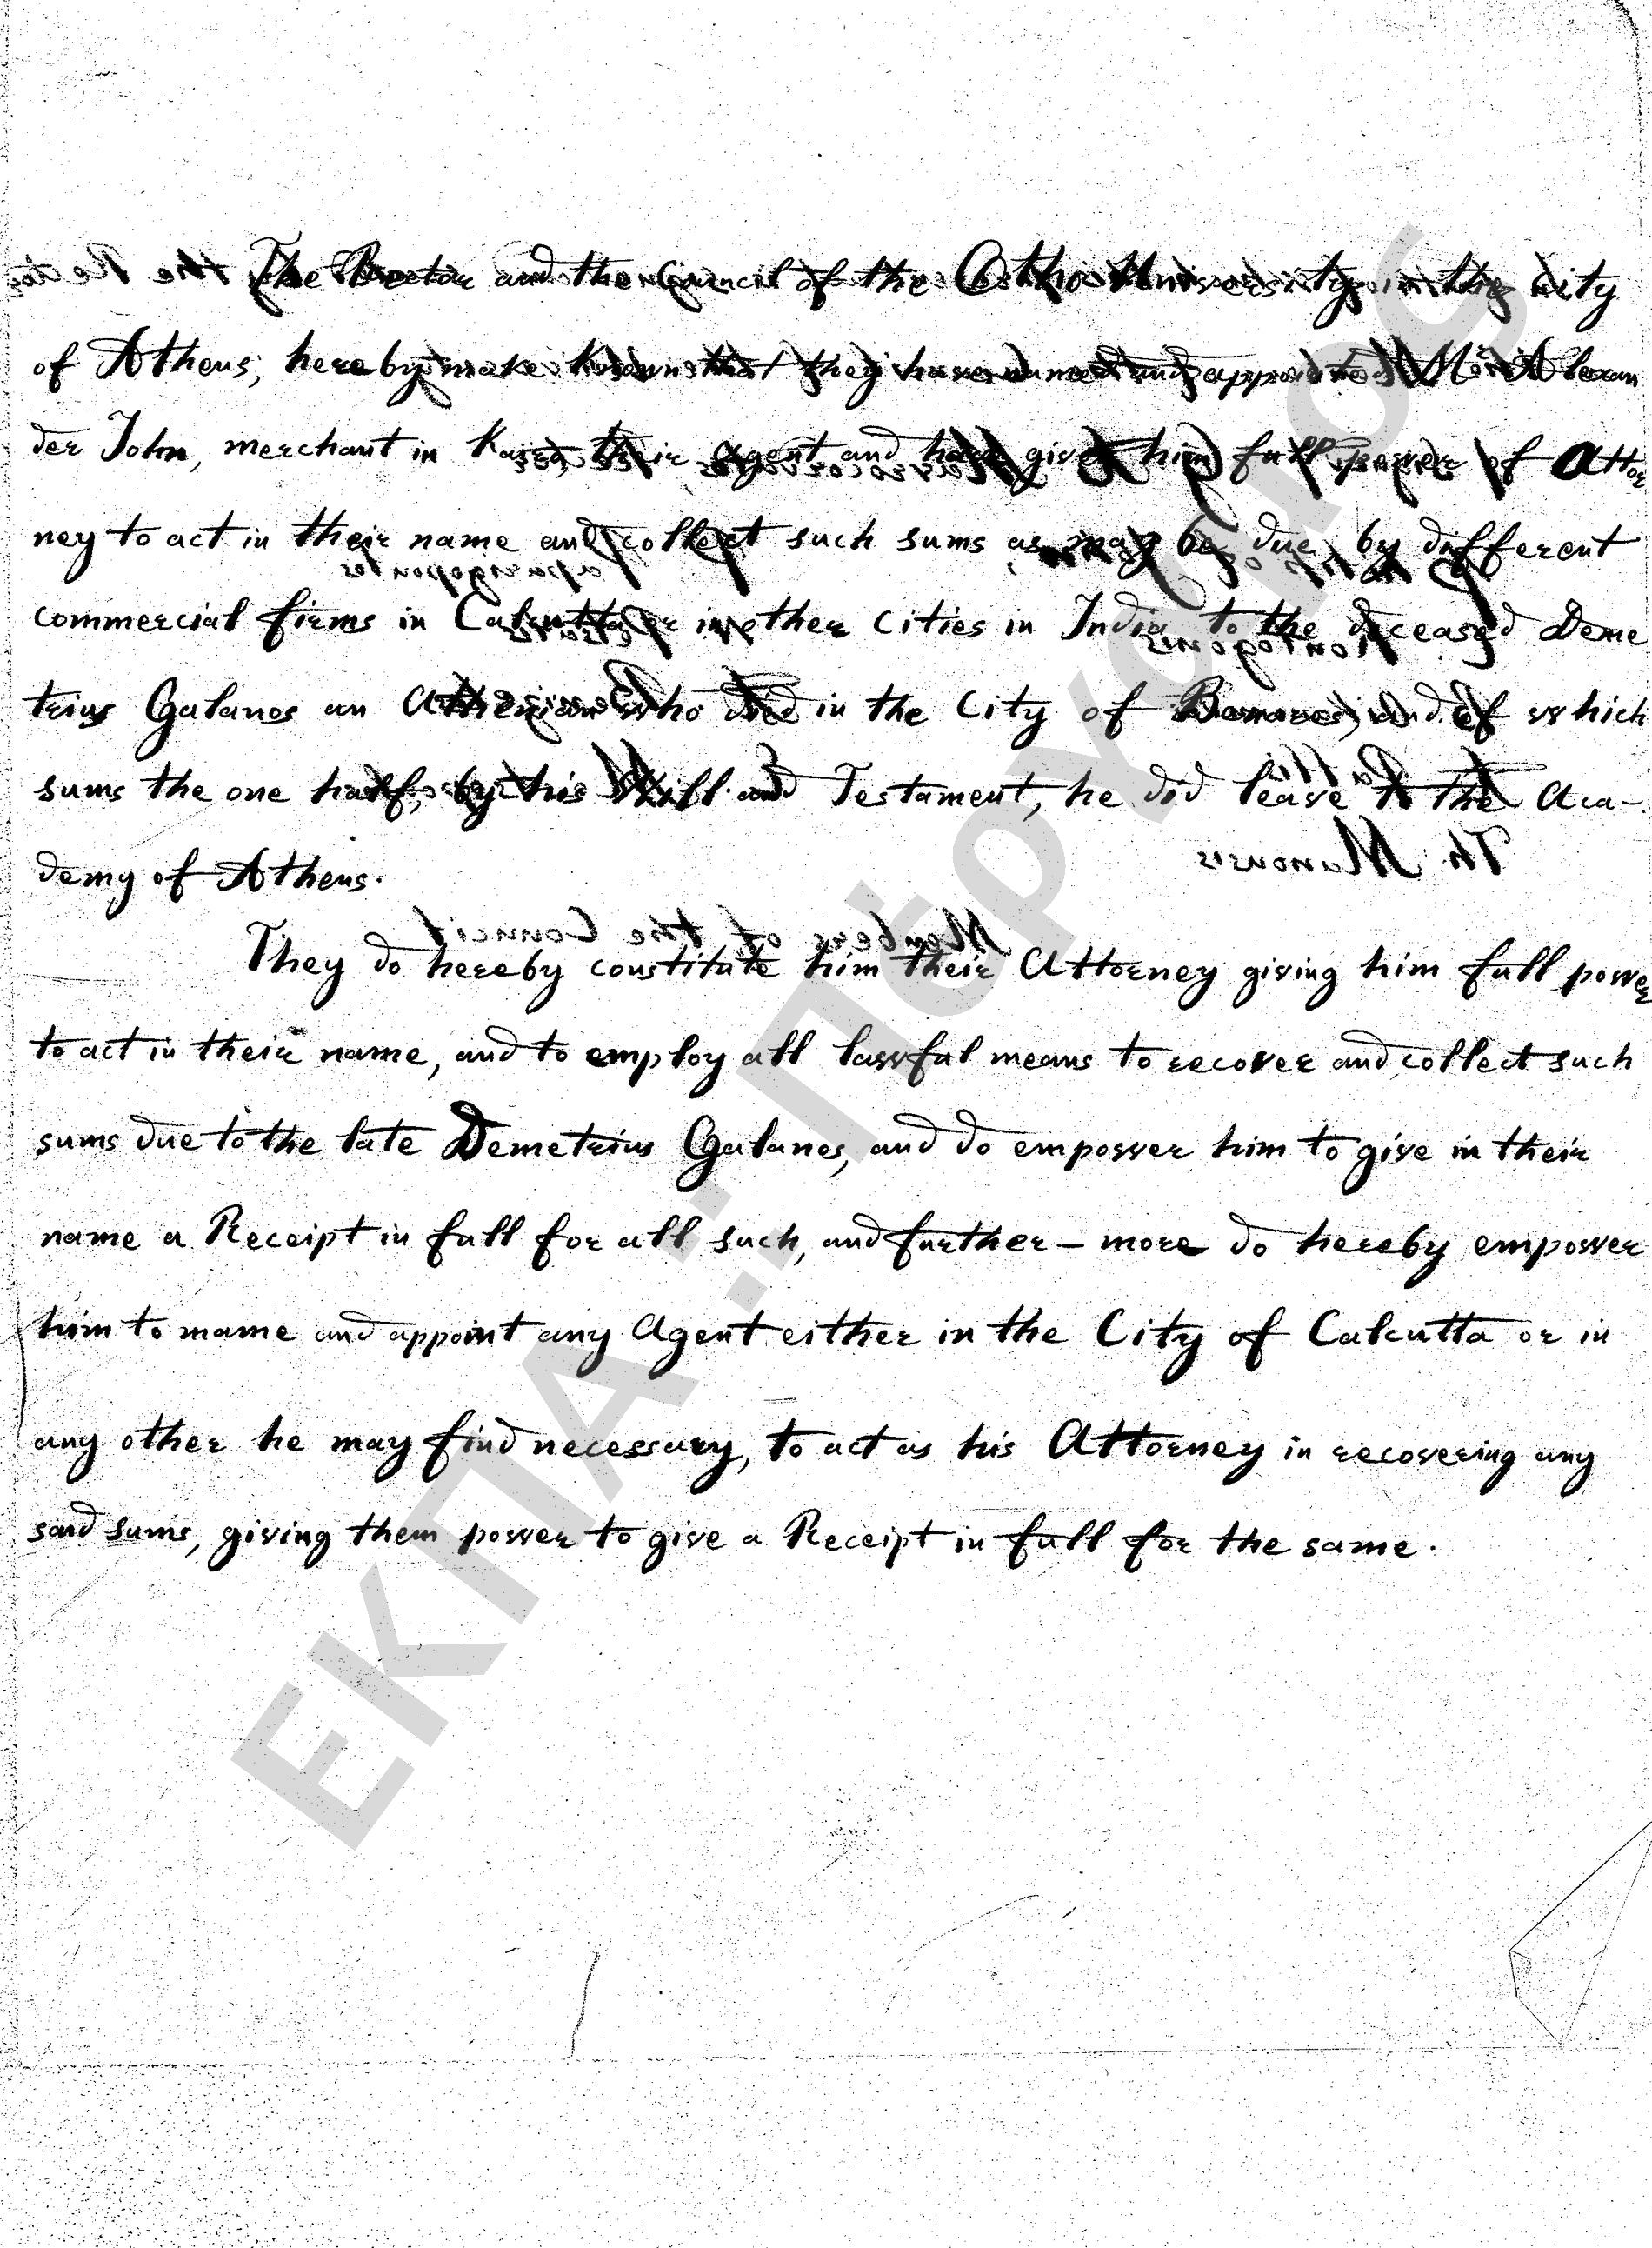 The Rector and the Council of the Otho University in the City
of Athens, hereby make known that they have named and appointed Mr Alexan
der John, merchant in Kairo, their Agent and have given him full power of Attor
ney to act in their name and collect such sums as may be due, by different
commercial firms in Calcutta or in other Cities in India to the deceased Deme
trius Galanos an Athenian who died in the City of Benares, and of which
sums the one half, by his Will and Testament, he did leave to the Aca-
demy of Athens.
Th. Manousis
Members of the Council
They do hereby constitute him their Attorney giving him full power
to act in their name, and to employ all lawful means to recover and collect such
sums due to the late Demetrius Galanos, and do empower him to give in their
name a Receipt in full for all such, and further-more do hereby empower
him to mame and appoint any Agent either in the City of Calcutta or in
any other he may find necessary, to act as his Attorney in recovering any
said sums, giving them power to give a Receipt in full for the same.
ΕΚΠΑ...Πέργαμος